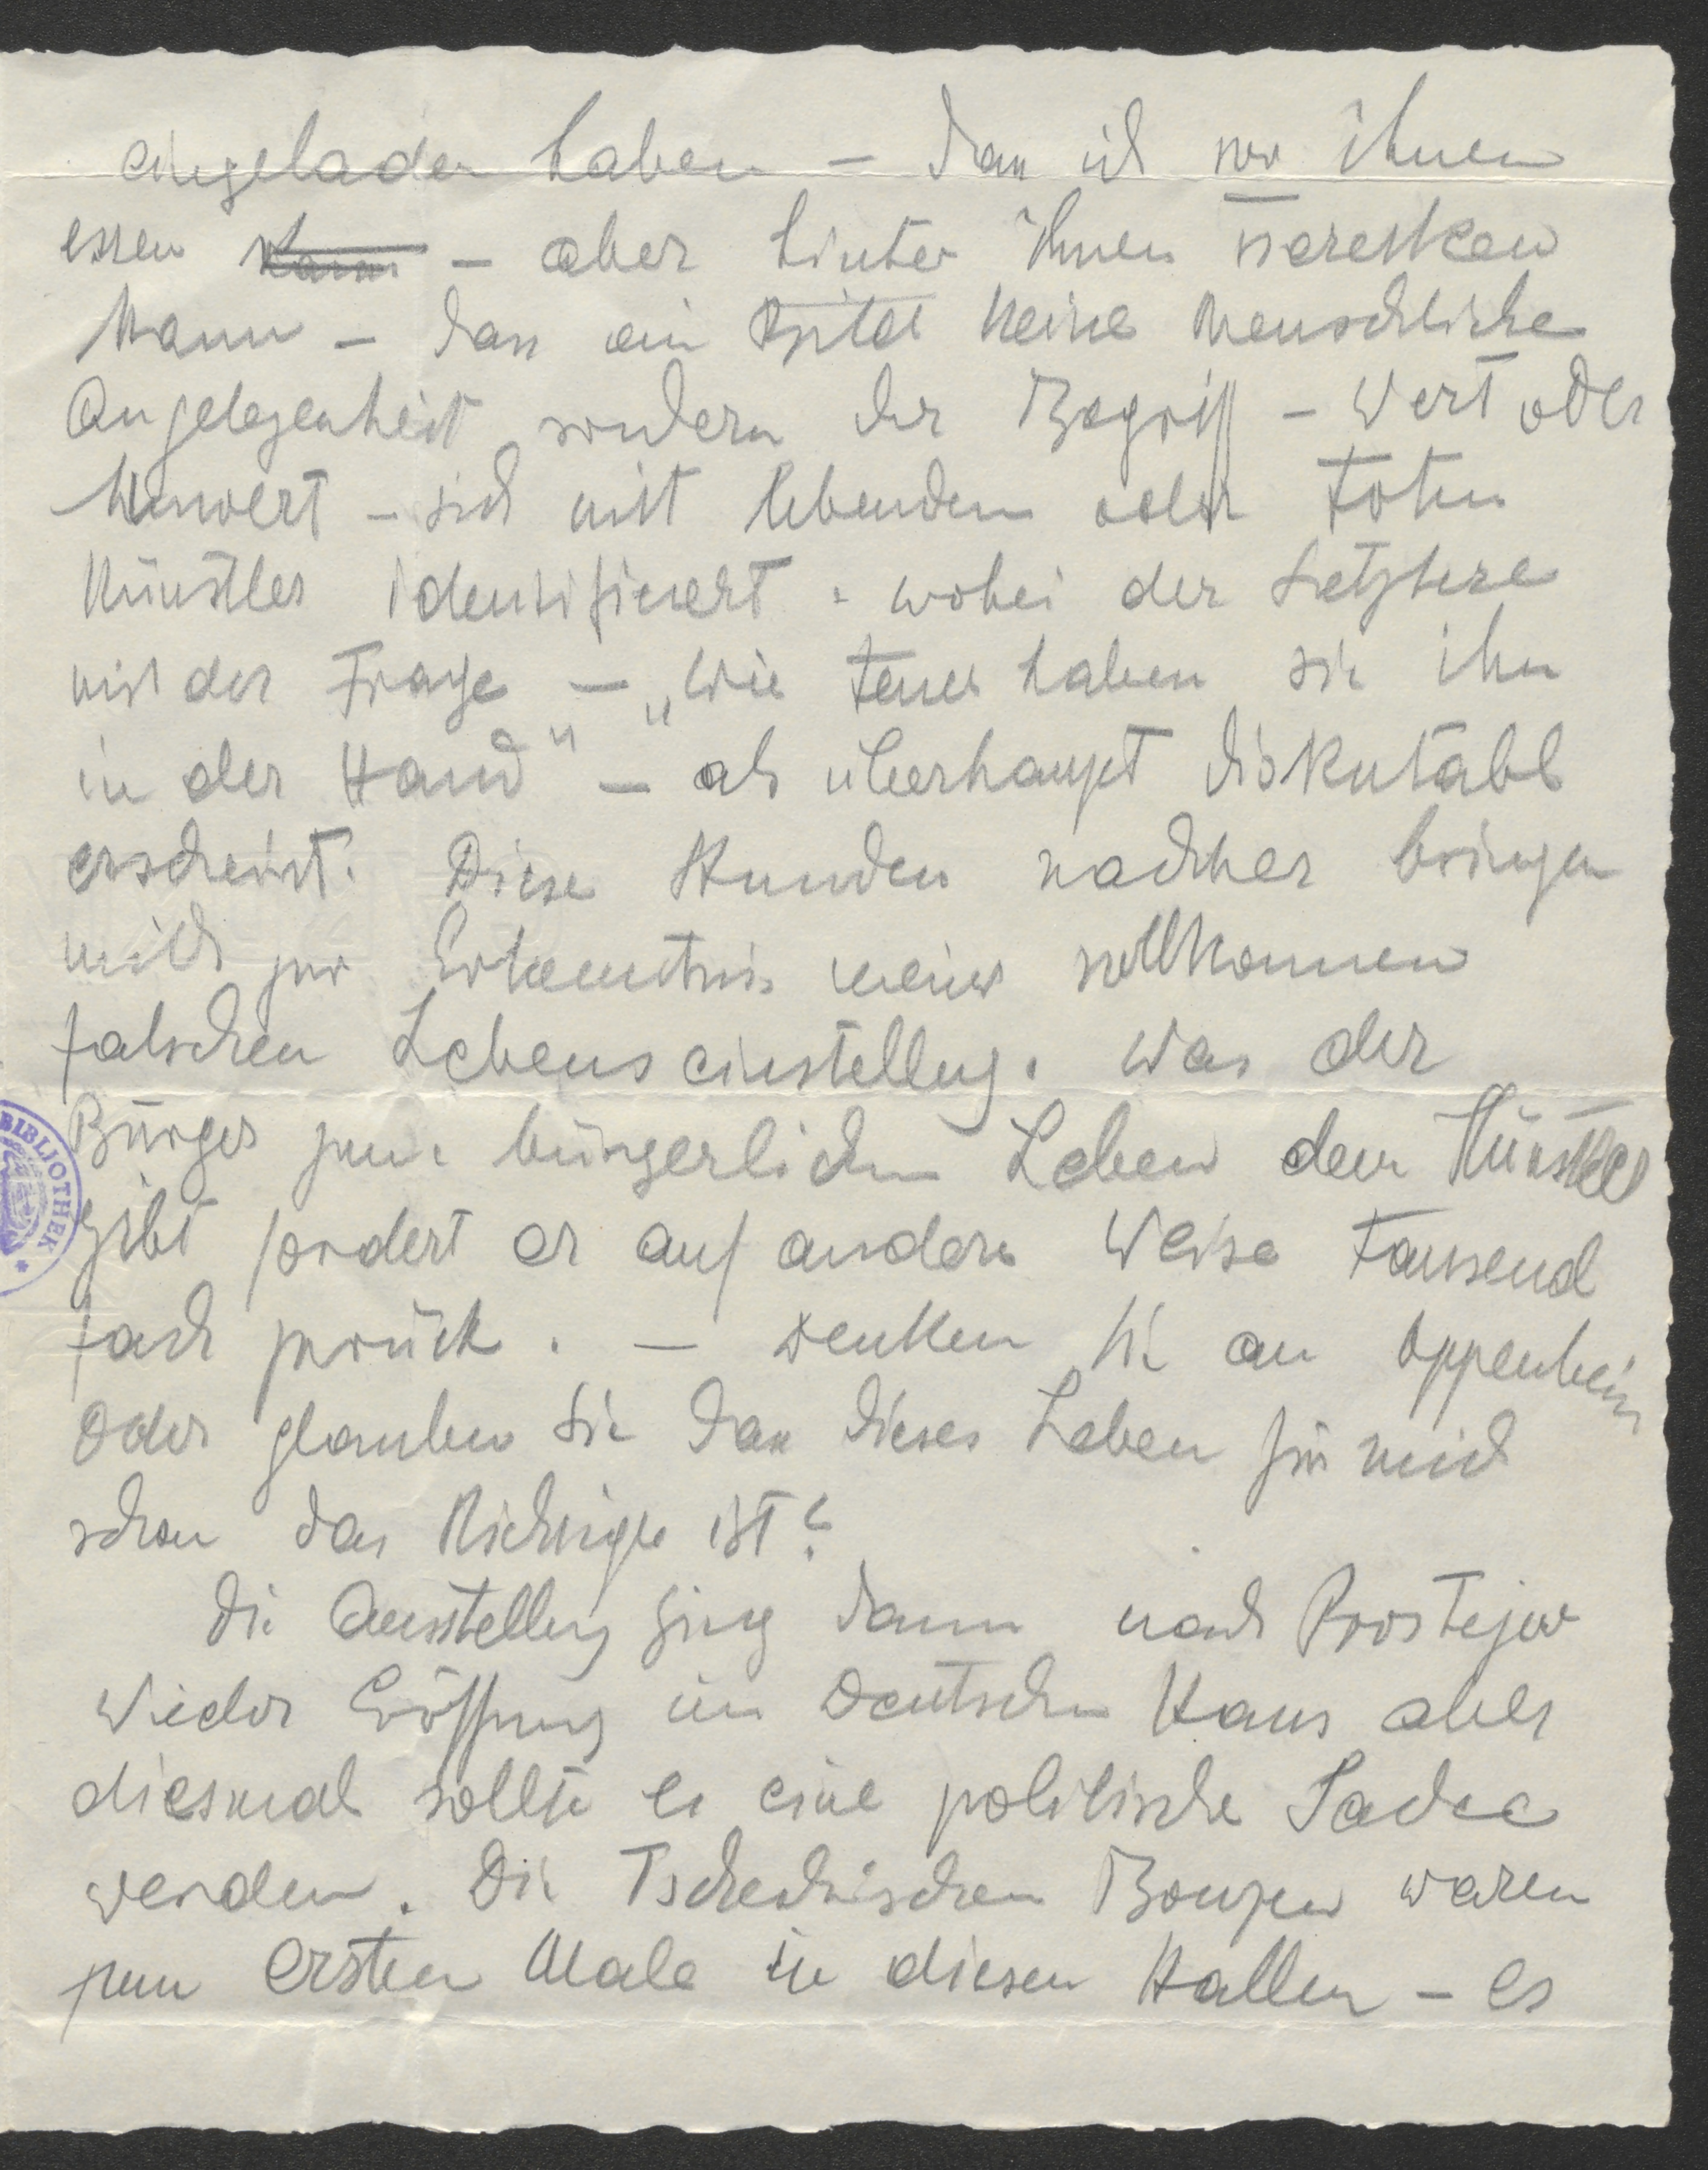 eingeladen haben – dass ich vor ihnen
essen kann – aber hinter ihnen verecken
kann – dass ein Bild keine menschliche
Angelegenheit sondern der Begriff – Wert oder
Unwert – sich mit lebenden oder toten
Künstler identifiziert – wobei der Letztere
mit der Frage – „Wie teuer haben sie ihn
in der Hand" – als überhaupt diskutabl
erscheint. Diese Stunden nachher bringen
mich zur Erkenntnis meiner vollkommen
falschen Lebenseinstellung. Was der
Bürger zum bürgerlichen Leben dem Künstler
gibt fordert er auf andere Weise tausend
fach zurück. – Denken Sie an Oppenheim
Oder glauben Sie dass dieses Leben für mich
schon das Richtige ist?
Die Ausstellung ging dann nach Prostejov
Wieder Eröffnung im Deutschen Haus aber
diesmal sollte es eine politische Sache
werden. Die Tschechischen Bonzen waren
zum ersten Male in diesen Hallen – es
BIBLIOTHEK